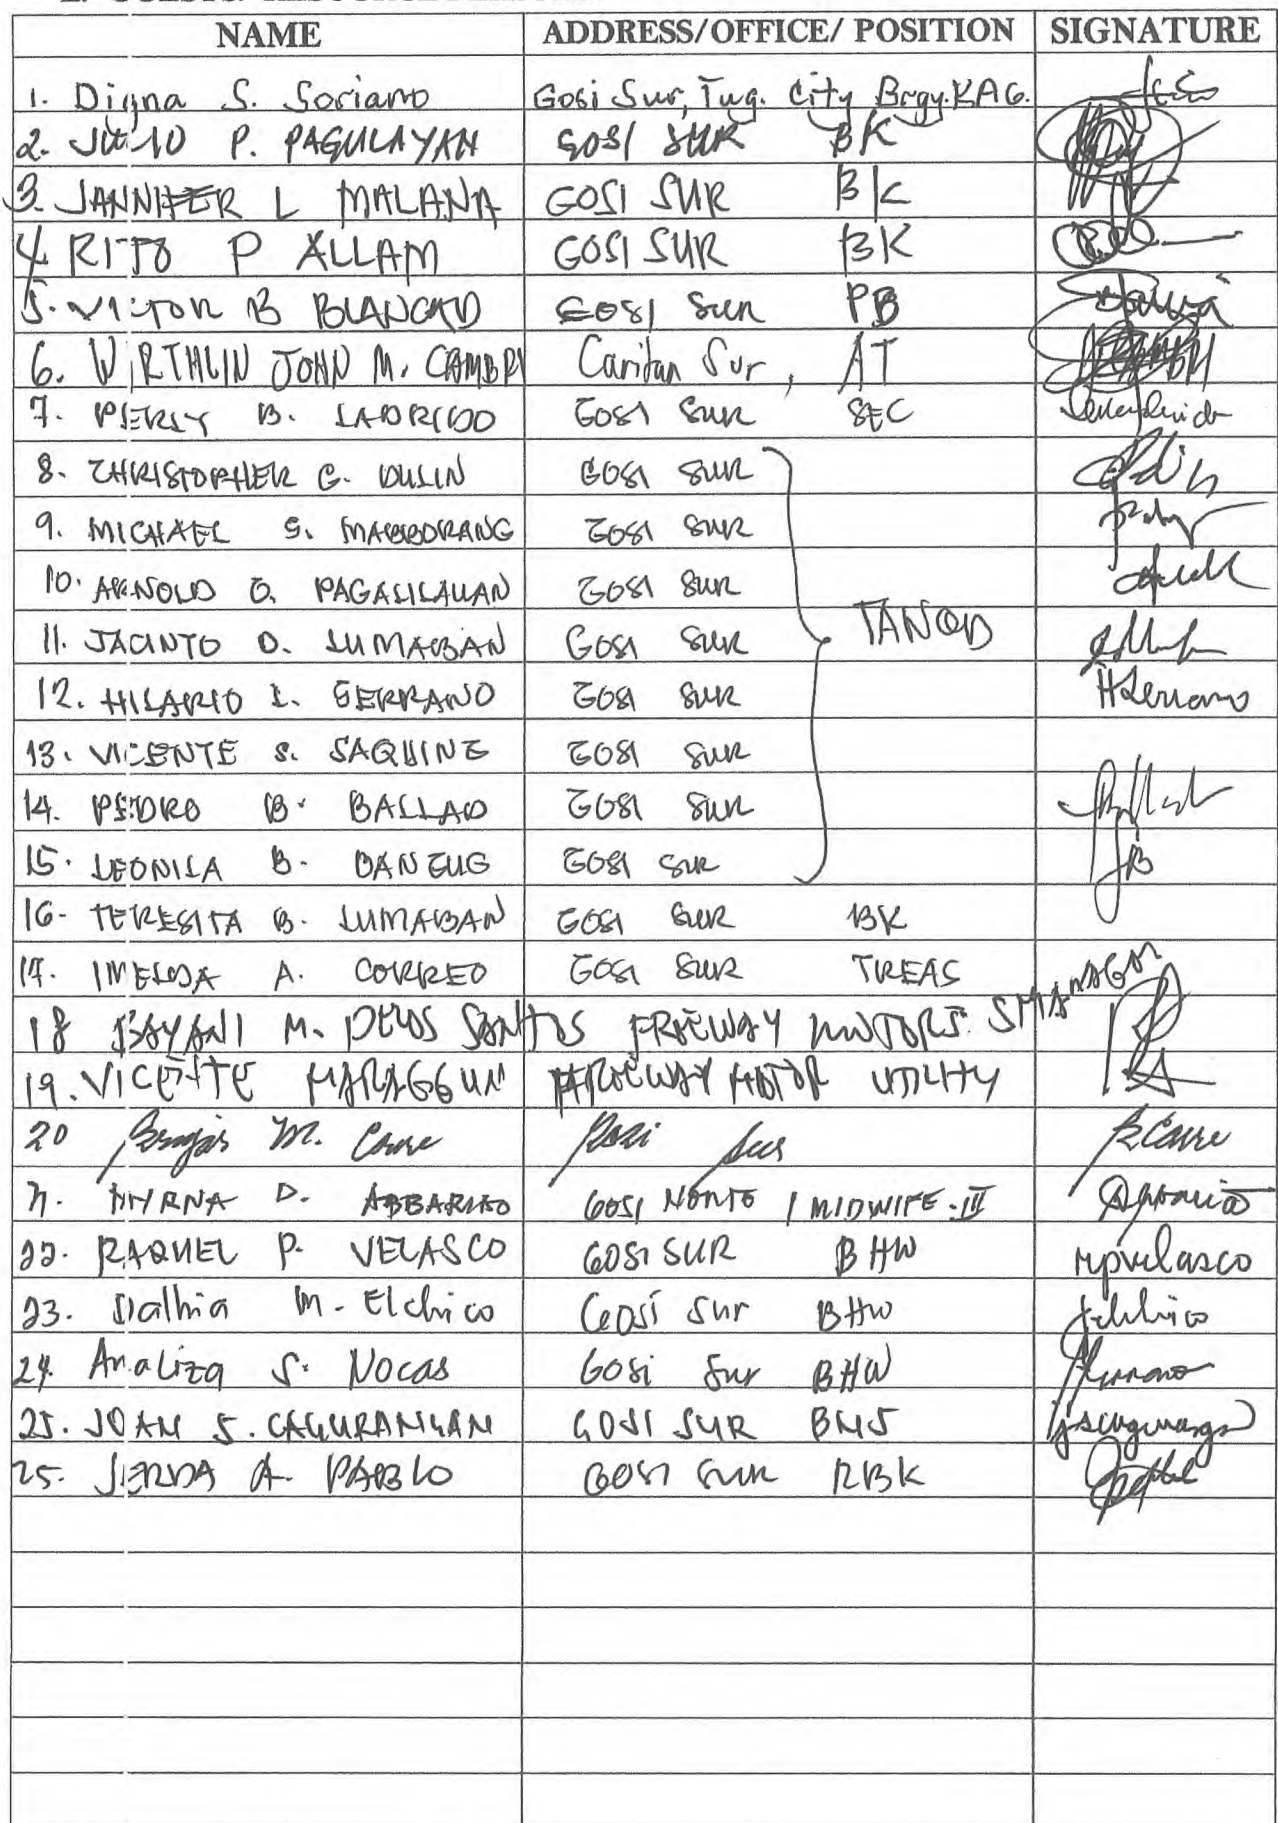 NAME ADDRESS/OFFICE/ POSITION SIGNATURE
1. Digna S. Soriano Gosi Sur, Tug. City Brgy. KAG.
2. JULIO P. PAGULAYAN GOSI SUR BK
3. JANNIFER L MALANA GOSI SUR BK
4 RITO P ALLAM GOSI SUR BK
5. VICTOR B BLANCAD GOSI SUR PB
6. WIRTHLIN JOHN M. CAMBRI Caritan Sur, AT
7. PERLY B. LADRIDO GOSI SUR SEC
8. CHRISTOPHER G. DULIN GOSI SUR
9. MICHAEL S. MABBORANG GOSI SUR
10. ARNOLD G. PAGALILAUAN GOSI SUR
TANOD
11. JACINTO D. LUMABAN GOSI SUR
12. HILARIO L. SERRANO GOSI SUR HSerrano
13. VICENTE S. SAQUING GOSI SUR
14. PEDRO B. BALLAD GOSI SUR
15. LEONILA B. DANGUG GOSI SUR
16. TERESITA B. LUMABAN GOSI SUR BK
17. IMELDA A. CORREO GOSI SUR TREAS
18 BAYANI M. DELOS SANTOS FREEWAY MOTORS. SMANAGER
19. VICENTE MARAGGUN FREEWAY MOTOR UTILITY
20 M. Gosi Sur
21. MYRNA D. GOSI NORTE / MIDWIFE-III
22. RAQUEL P. VELASCO GOSI SUR BHW rpvelasco
23. Dalhia M. Elchico Gosi Sur BHW
24. Analiza S. Nocas Gosi Sur BHW
25. JOAN S. CAGURANGAN GOSI SUR BNS
25. JERDA A. PABLO GOSI SUR RBK